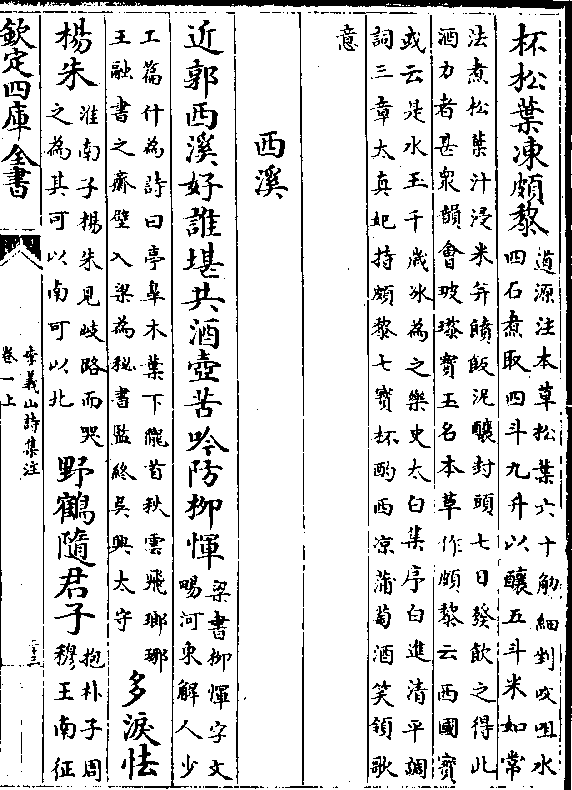 杯松葉凍頗黎道源注本草松葉六十觔細剉㕮咀水
四石煮取四斗九升以釀五斗米如常
法煮松葉汁浸米并饙飯泥釀封頭七日發飲之得此
酒力者甚衆韻會玻瓈寶玉名本草作頗黎云西國寶
或云是水玉千歲冰為之樂史太白集序白進清平調
詞三章太真妃持頗黎七寶杯酌西凉蒲萄酒笑領歌
意
西溪
近郭西溪好誰堪共酒壺苦吟防柳惲梁書柳惲字文
暢河東解人少
工篇什為詩曰亭臯木葉下隴首秋雲飛瑯琊
王融書之齋壁入梁為秘書監終吳興太守
多淚怯
楊朱淮南子楊朱見岐路而哭
之為其可以南可以北
野鶴隨君子抱朴子周
穆王南征
欽定四庫全書
李義山詩集注
卷一上
二十三